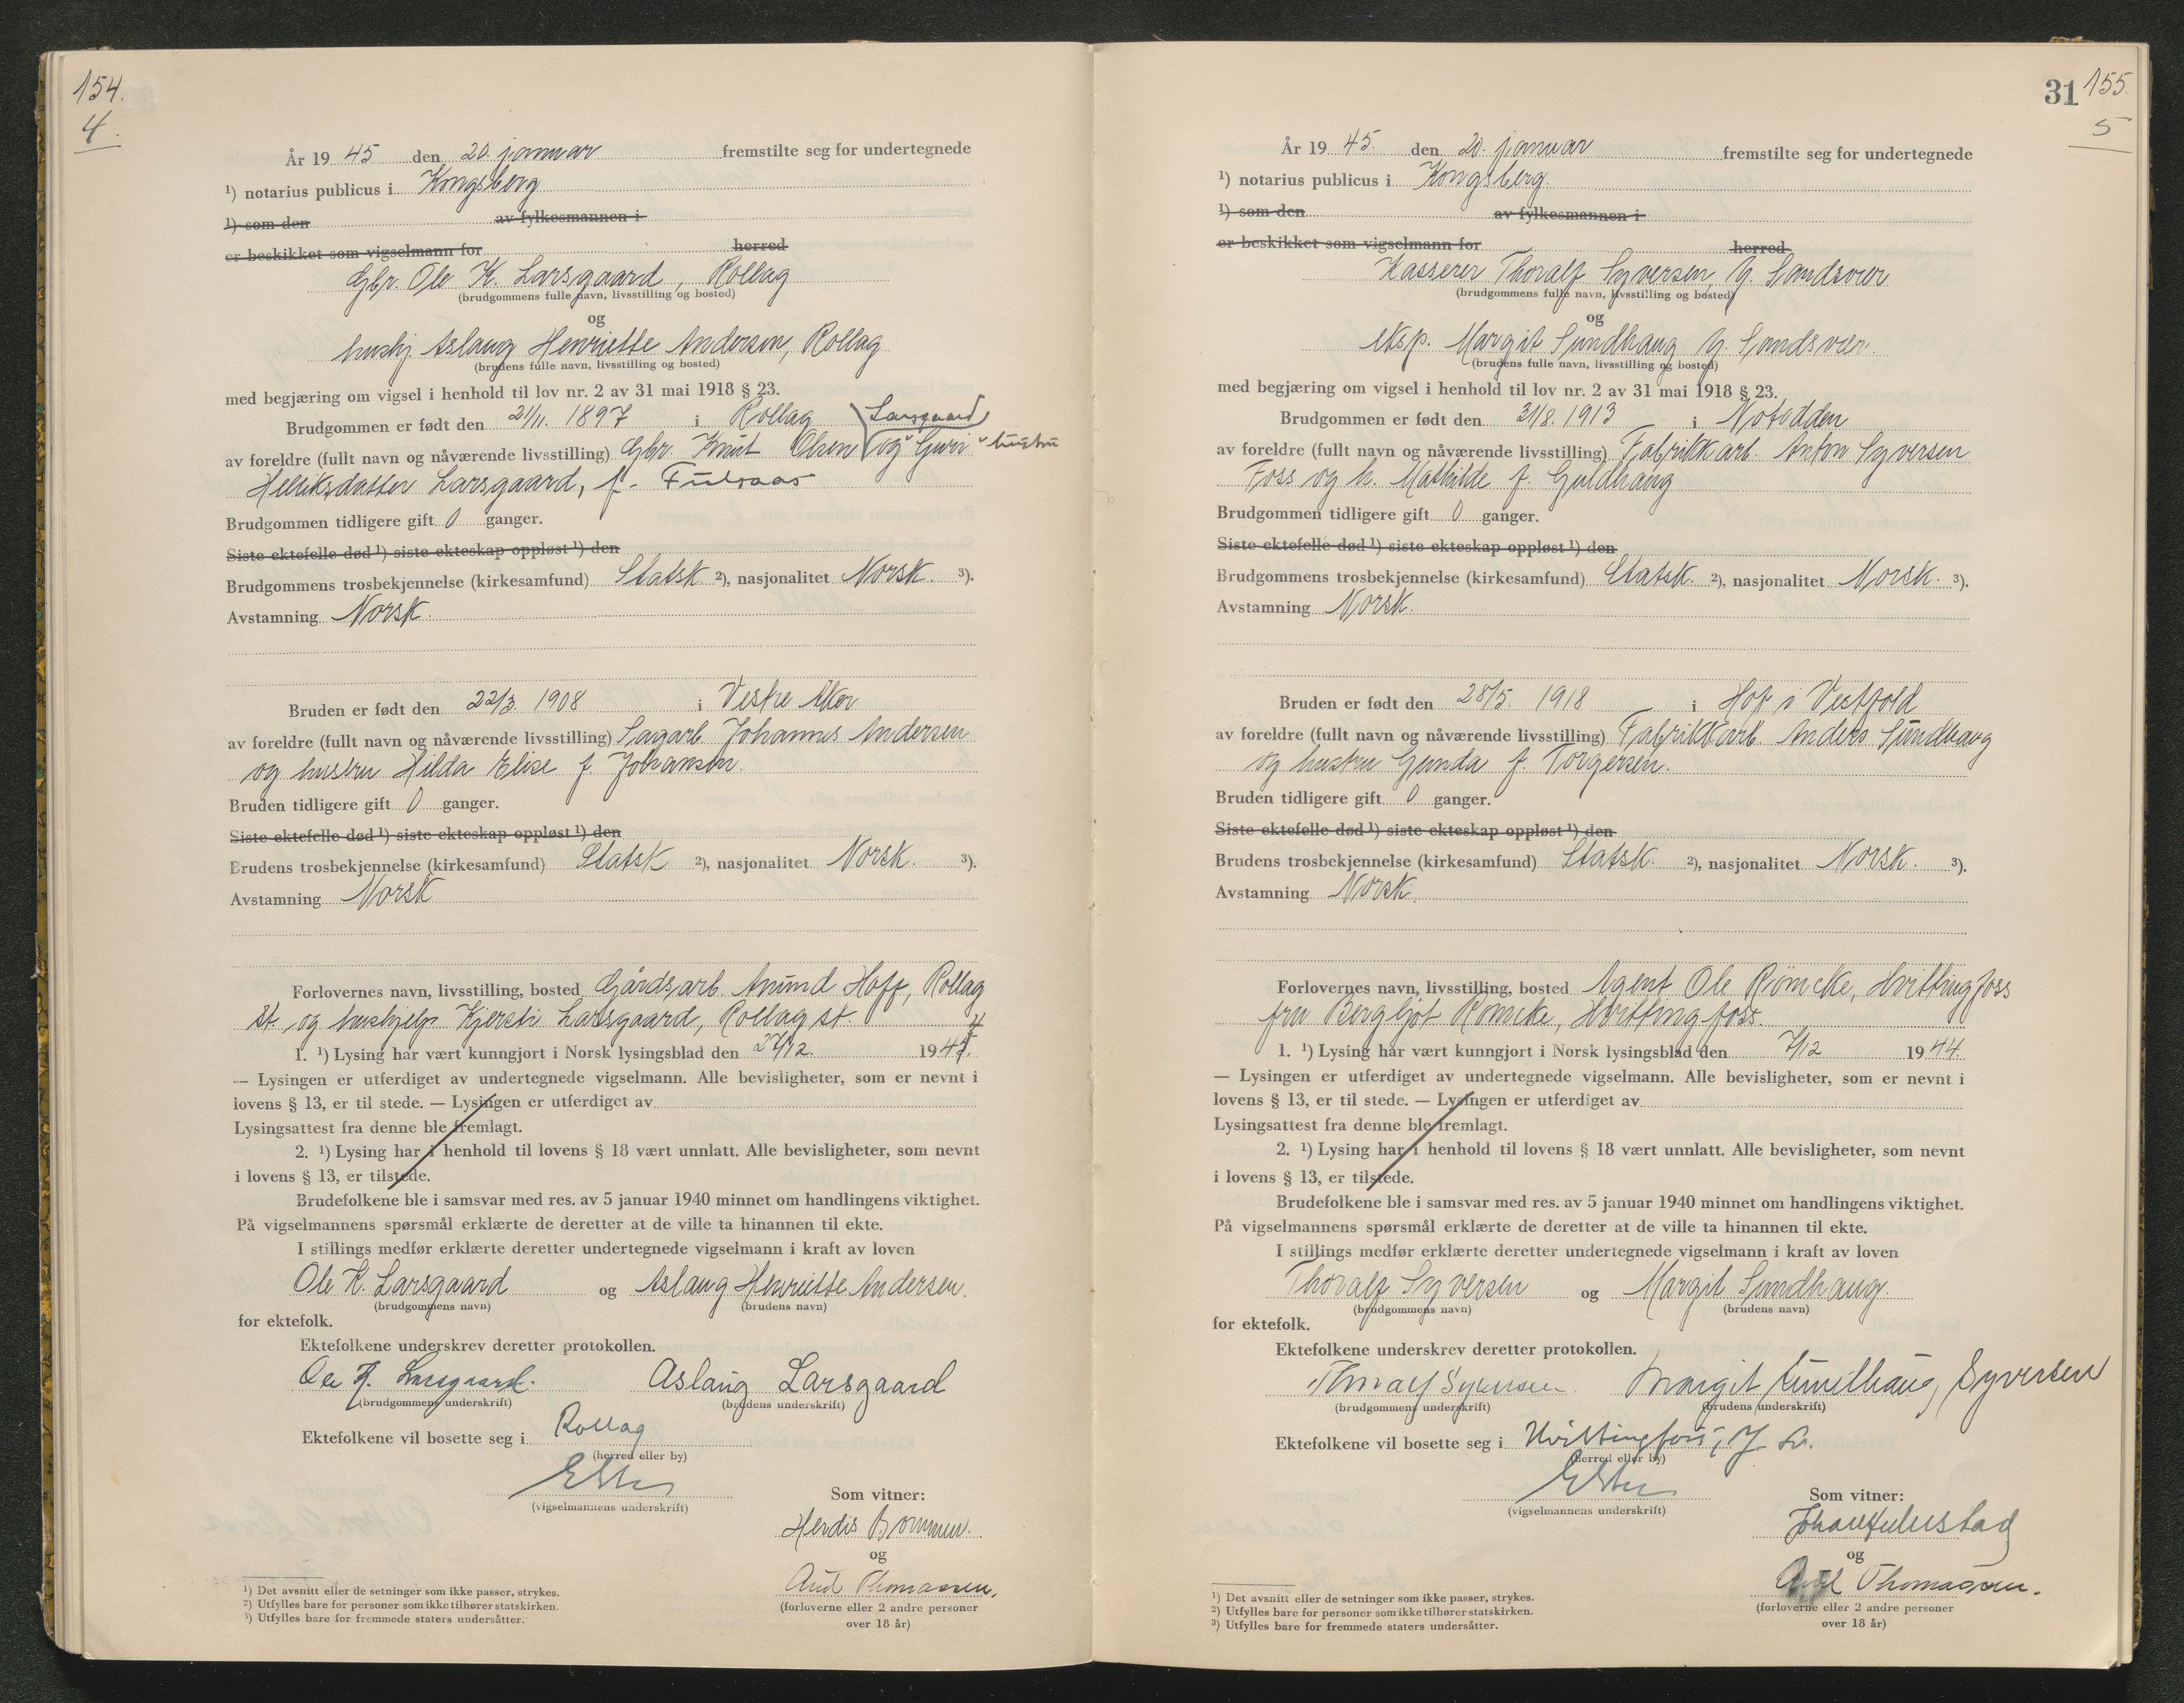 154.
4.
År 19 45 den 20. januar fremstilte seg for undertegnede
¹) notarius publicus i Kongsberg
¹) som den av fylkesmannen i
er beskikket som vigselmann for herred
Gbr. Ole K. Larsgaard, Rollag
(brudgommens fulle navn, livsstilling og bosted)
og
hushj Aslaug Henriette Andersen, Rollag
(brudens fulle navn, livsstilling og bosted)
med begjæring om vigsel i henhold til lov nr. 2 av 31 mai 1918 § 23.
Brudgommen er født den 21/11. 1897 i Rollag
Larsgaard
av foreldre (fullt navn og nåværende livsstilling) Gbr. Knut Olsen og hustru Guri
Henriksdatter Larsgaard, f.
Brudgommen tidligere gift 0 ganger.
Siste ektefelle død ¹) siste ekteskap oppløst ¹) den
Brudgommens trosbekjennelse (kirkesamfund) Statsk. ²), nasjonalitet Norsk. ³).
Avstamning Norsk.
Bruden er født den 22/3 1908 i Vestre Aker
av foreldre (fullt navn og nåværende livsstilling) Sagarb. Johannes Andersen
og hustru Hilda Elise f. Johansen.
Bruden tidligere gift 0 ganger.
Siste ektefelle død ¹) siste ekteskap oppløst ¹) den
Brudens trosbekjennelse (kirkesamfund) Statsk ²), nasjonalitet Norsk. ³).
Avstamning Norsk
Forlovernes navn, livsstilling, bosted Gårdsarb. Amund Hoff, Rollag
st. og hushjelp Kjersti Larsgaard, Rollag st.
1. ¹) Lysing har vært kunngjort i Norsk lysingsblad den 27/12. 1944.
— Lysingen er utferdiget av undertegnede vigselmann. Alle bevisligheter, som er nevnt i
lovens § 13, er til stede. — Lysingen er utferdiget av
Lysingsattest fra denne ble fremlagt.
2. ¹) Lysing har i henhold til lovens § 18 vært unnlatt. Alle bevisligheter, som nevnt
i lovens § 13, er tilstede.
Brudefolkene ble i samsvar med res. av 5 januar 1940 minnet om handlingens viktighet.
På vigselmannens spørsmål erklærte de deretter at de ville ta hinannen til ekte.
I stillings medfør erklærte deretter undertegnede vigselmann i kraft av loven
Ole K. Larsgaard og Aslaug Henriette Andersen.
(brudgommens navn) (brudens navn)
for ektefolk.
Ektefolkene underskrev deretter protokollen.
Ole K. Larsgaard. Aslaug Larsgaard
(brudgommens underskrift) (brudens underskrift)
Ektefolkene vil bosette seg i Rollag
(herred eller by)
(vigselmannens underskrift)
Som vitner:
Herdis Bommen.
og
Aud Thomassen.
(forloverne eller 2 andre personer
over 18 år)
¹) Det avsnitt eller de setninger som ikke passer, strykes.
²) Utfylles bare for personer som ikke tilhører statskirken.
³) Utfylles bare for fremmede staters undersåtter.
31 155.
5
År 19 45. den 20. januar fremstilte seg for undertegnede
¹) notarius publicus i Kongsberg.
¹) som den av fylkesmannen i
er beskikket som vigselmann for herred
Kasserer Thoralf Syversen, Y. Sandsvær
(brudgommens fulle navn, livsstilling og bosted)
og
eksp. Margit Sundhaug Y. Sandsvær.
(brudens fulle navn, livsstilling og bosted)
med begjæring om vigsel i henhold til lov nr. 2 av 31 mai 1918 § 23.
Brudgommen er født den 31/8. 1913 i Notodden
av foreldre (fullt navn og nåværende livsstilling) Fabrikkarb. Anton Syversen
Foss og h. Mathilde f. Guldhaug
Brudgommen tidligere gift 0 ganger.
Siste ektefelle død ¹) siste ekteskap oppløst ¹) den
Brudgommens trosbekjennelse (kirkesamfund) Statsk. ²), nasjonalitet Norsk. ³).
Avstamning Norsk.
Bruden er født den 28/5. 1918 i Hof i Vestfold
av foreldre (fullt navn og nåværende livsstilling) Fabrikkarb. Anders Sundhaug
og hustru Gunda f. Torgersen.
Bruden tidligere gift 0 ganger.
Siste ektefelle død ¹) siste ekteskap oppløst ¹) den
Brudens trosbekjennelse (kirkesamfund) Statsk. ²), nasjonalitet Norsk. ³).
Avstamning Norsk.
Forlovernes navn, livsstilling, bosted Agent Ole Römcke, Hvittingfoss
fru Bergljot Römcke, Hvittingfoss.
1. ¹) Lysing har vært kunngjort i Norsk lysingsblad den 7/12 1944.
— Lysingen er utferdiget av undertegnede vigselmann. Alle bevisligheter, som er nevnt i
lovens § 13, er til stede. — Lysingen er utferdiget av
Lysingsattest fra denne ble fremlagt.
2. ¹) Lysing har i henhold til lovens § 18 vært unnlatt. Alle bevisligheter, som nevnt
i lovens § 13, er tilstede.
Brudefolkene ble i samsvar med res. av 5 januar 1940 minnet om handlingens viktighet.
På vigselmannens spørsmål erklærte de deretter at de ville ta hinannen til ekte.
I stillings medfør erklærte deretter undertegnede vigselmann i kraft av loven
Thoralf Syversen og Margit Sundhaug.
(brudgommens navn) (brudens navn)
for ektefolk.
Ektefolkene underskrev deretter protokollen.
Thoralf Syversen. Margit Sundhaug Syversen
(brudgommens underskrift) (brudens underskrift)
Ektefolkene vil bosette seg i Hvittingfoss, Y. S.
(herred eller by)
(vigselmannens underskrift)
Som vitner:
Johan
og
Aud Thomassen.
(forloverne eller 2 andre personer
over 18 år)
¹) Det avsnitt eller de setninger som ikke passer, strykes.
²) Utfylles bare for personer som ikke tilhører statskirken.
³) Utfylles bare for fremmede staters undersåtter.